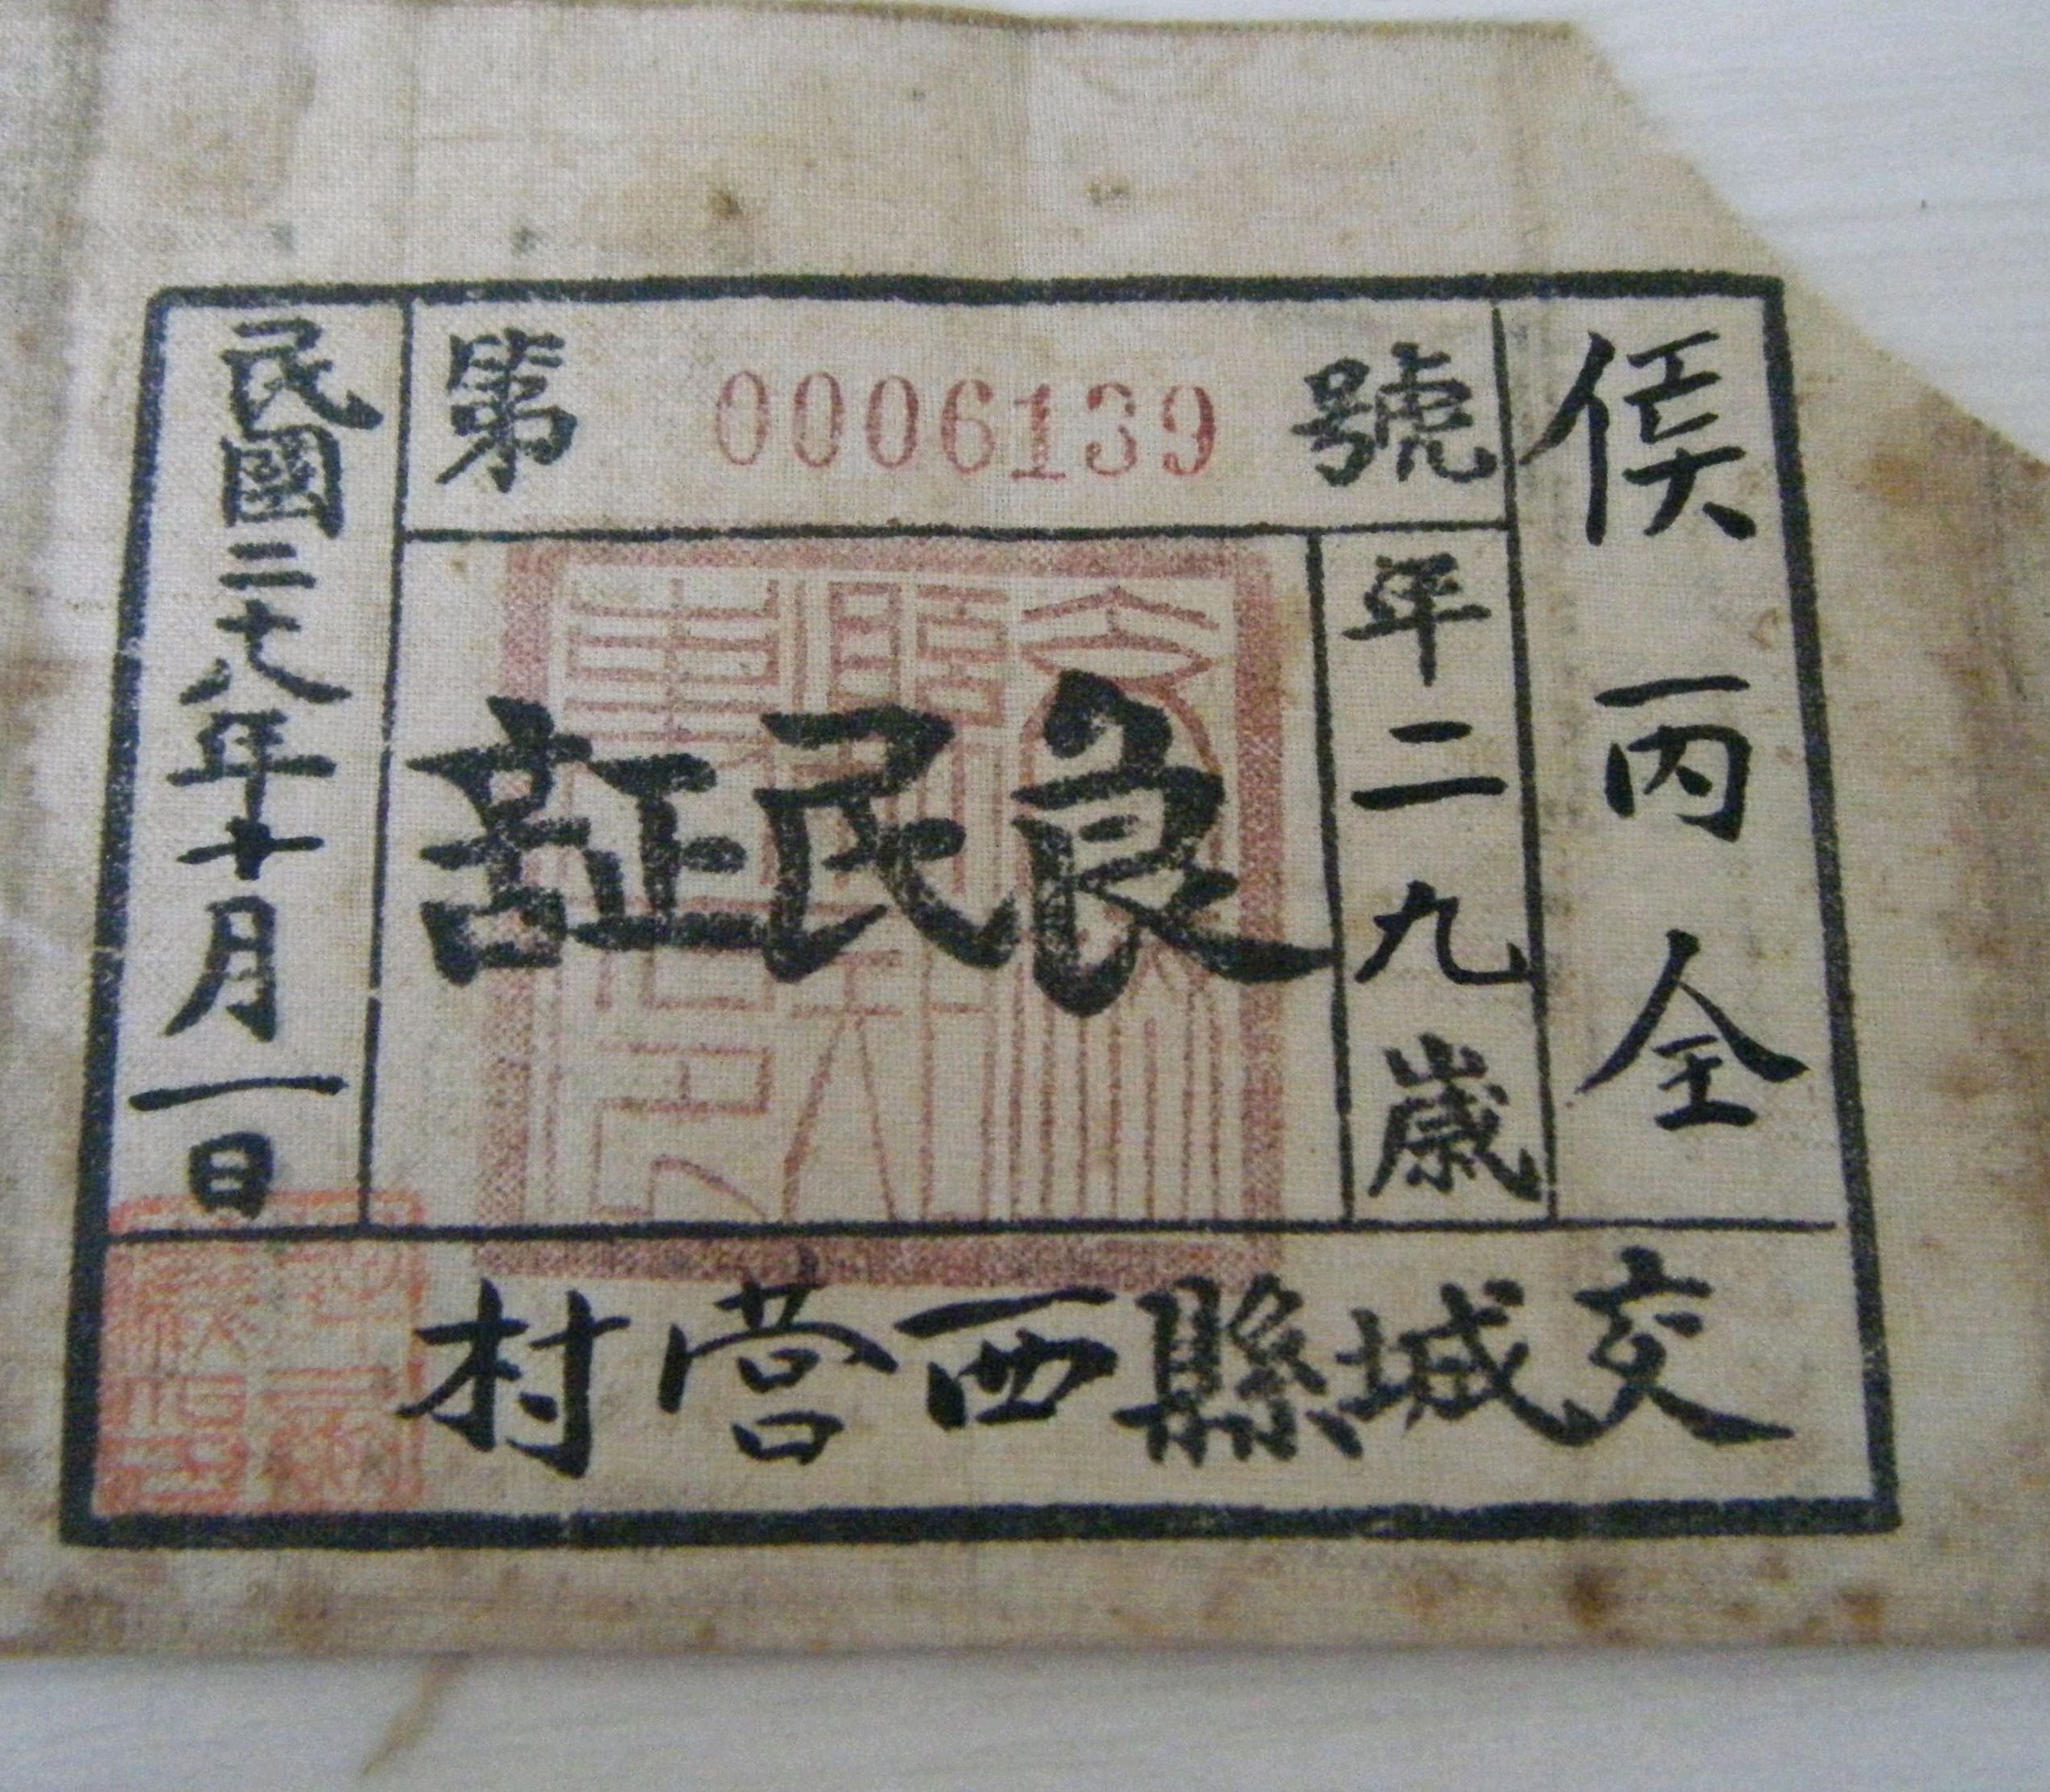 侯丙全
第 0006139 號
年二九歲
良民証
民國二十八年十月一日
交城縣西营村